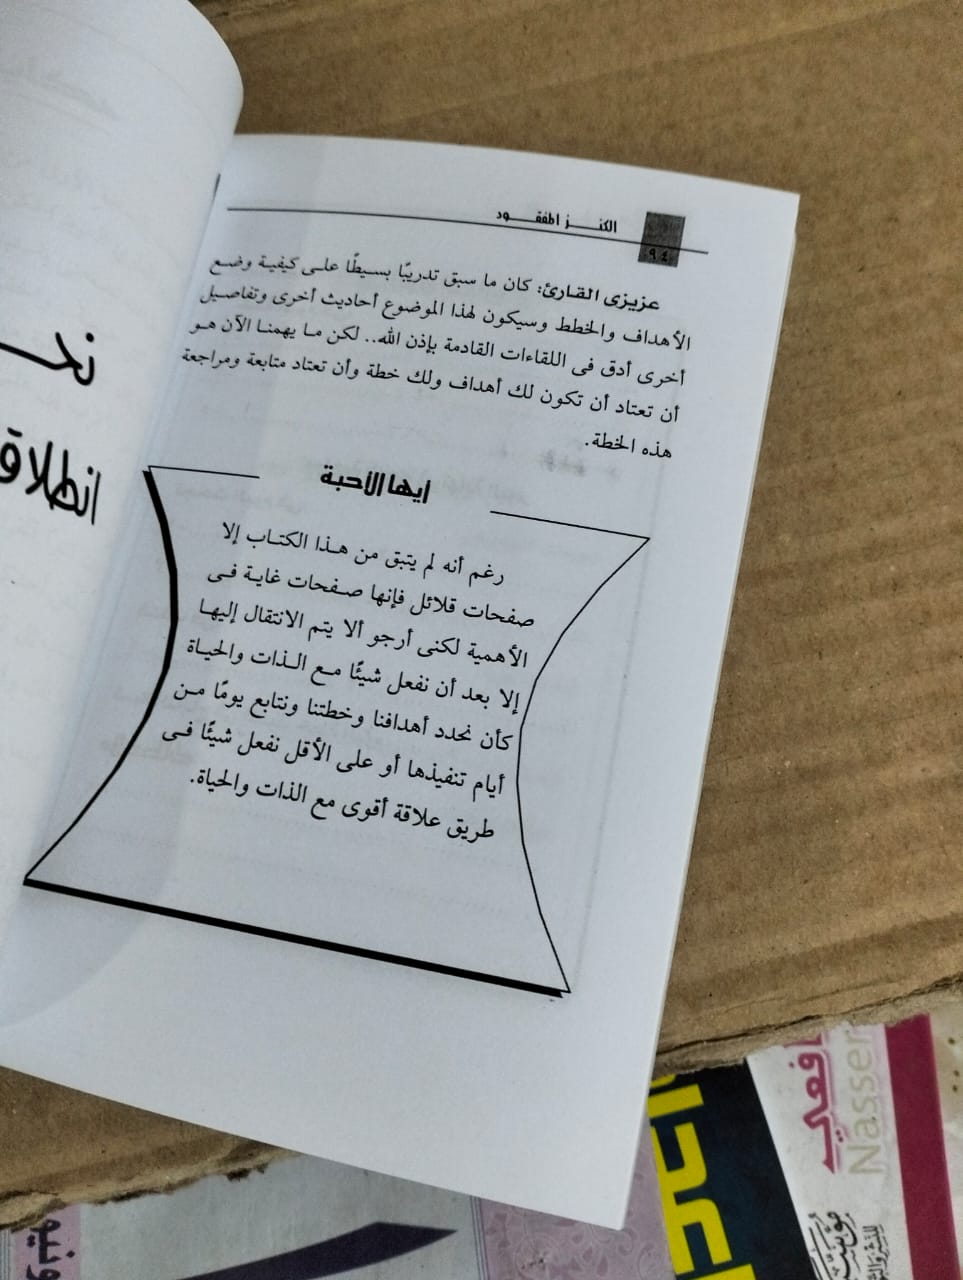 الكنز المفقود
٩٤
عزيزى القارئ: كان ما سبق تدريبًا بسيطًا على كيفية وضع
الأهداف والخطط وسيكون لهذا الموضوع أحاديث أخرى وتفاصيل
أخرى أدق فى اللقاءات القادمة بإذن الله.. لكن ما يهمنا الآن هو
أن تعتاد أن تكون لك أهداف ولك خطة وأن تعتاد متابعة ومراجعة
هذه الخطة.
أيها الأحبة
رغم أنه لم يتبق من هذا الكتاب إلا
صفحات قلائل فإنها صفحات غاية فى
الأهمية لكنى أرجو ألا يتم الانتقال إليها
إلا بعد أن نفعل شيئًا مع الذات والحياة
كأن نحدد أهدافنا وخطتنا ونتابع يومًا من
أيام تنفيذها أو على الأقل نفعل شيئًا فى
طريق علاقة أقوى مع الذات والحياة.
Nasser